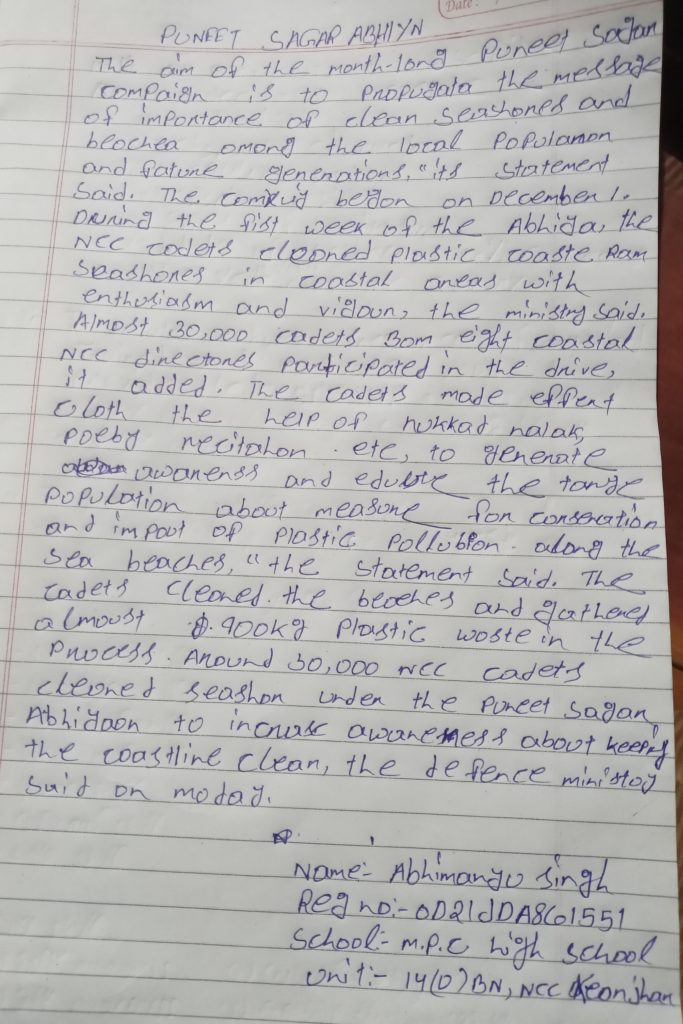 Date:
PUNEET SAGAR ABHIYN
The aim of the month-long Puneet Sagan
compaign is to Propugata the message
of importance of clean seashones and
beochea omong the local Populamon
and fiatune generations, "its statement
Said. The began on December 1.
Duning the fist week of the Abhiya, the
NCC codets cleaned plastic coaste Ram
Seashones in coastal aneas with
enthusiasm and vidoun, the ministry said.
Almost 30,000 cadets Bom eight coastal
NCC dinectones participated in the dnive,
it added. The cadets made effent
cloth the help of nukkad nalak,
poeby necitahon etc, to genenate
awanenss and the tange
population about measune fon consenation
and impaut of plastic pollubion along the
Sea beaches, "the statement said. The
cadets cleoned the beoehes and gathened
almoust 9.400kg plastic woste in the
process. Anound 30,000 NCC cadets
cleoned seashon under the puneet sagan
Abhidaon to awaneness about keeping
the coastline clean, the defence ministoy
said on moday.
Name:- Abhimanyu Singh
Reg no:- OD21JDA861551
School:- M.P.C high school
Unit:- 14(O) BN, NCC Keonjhar